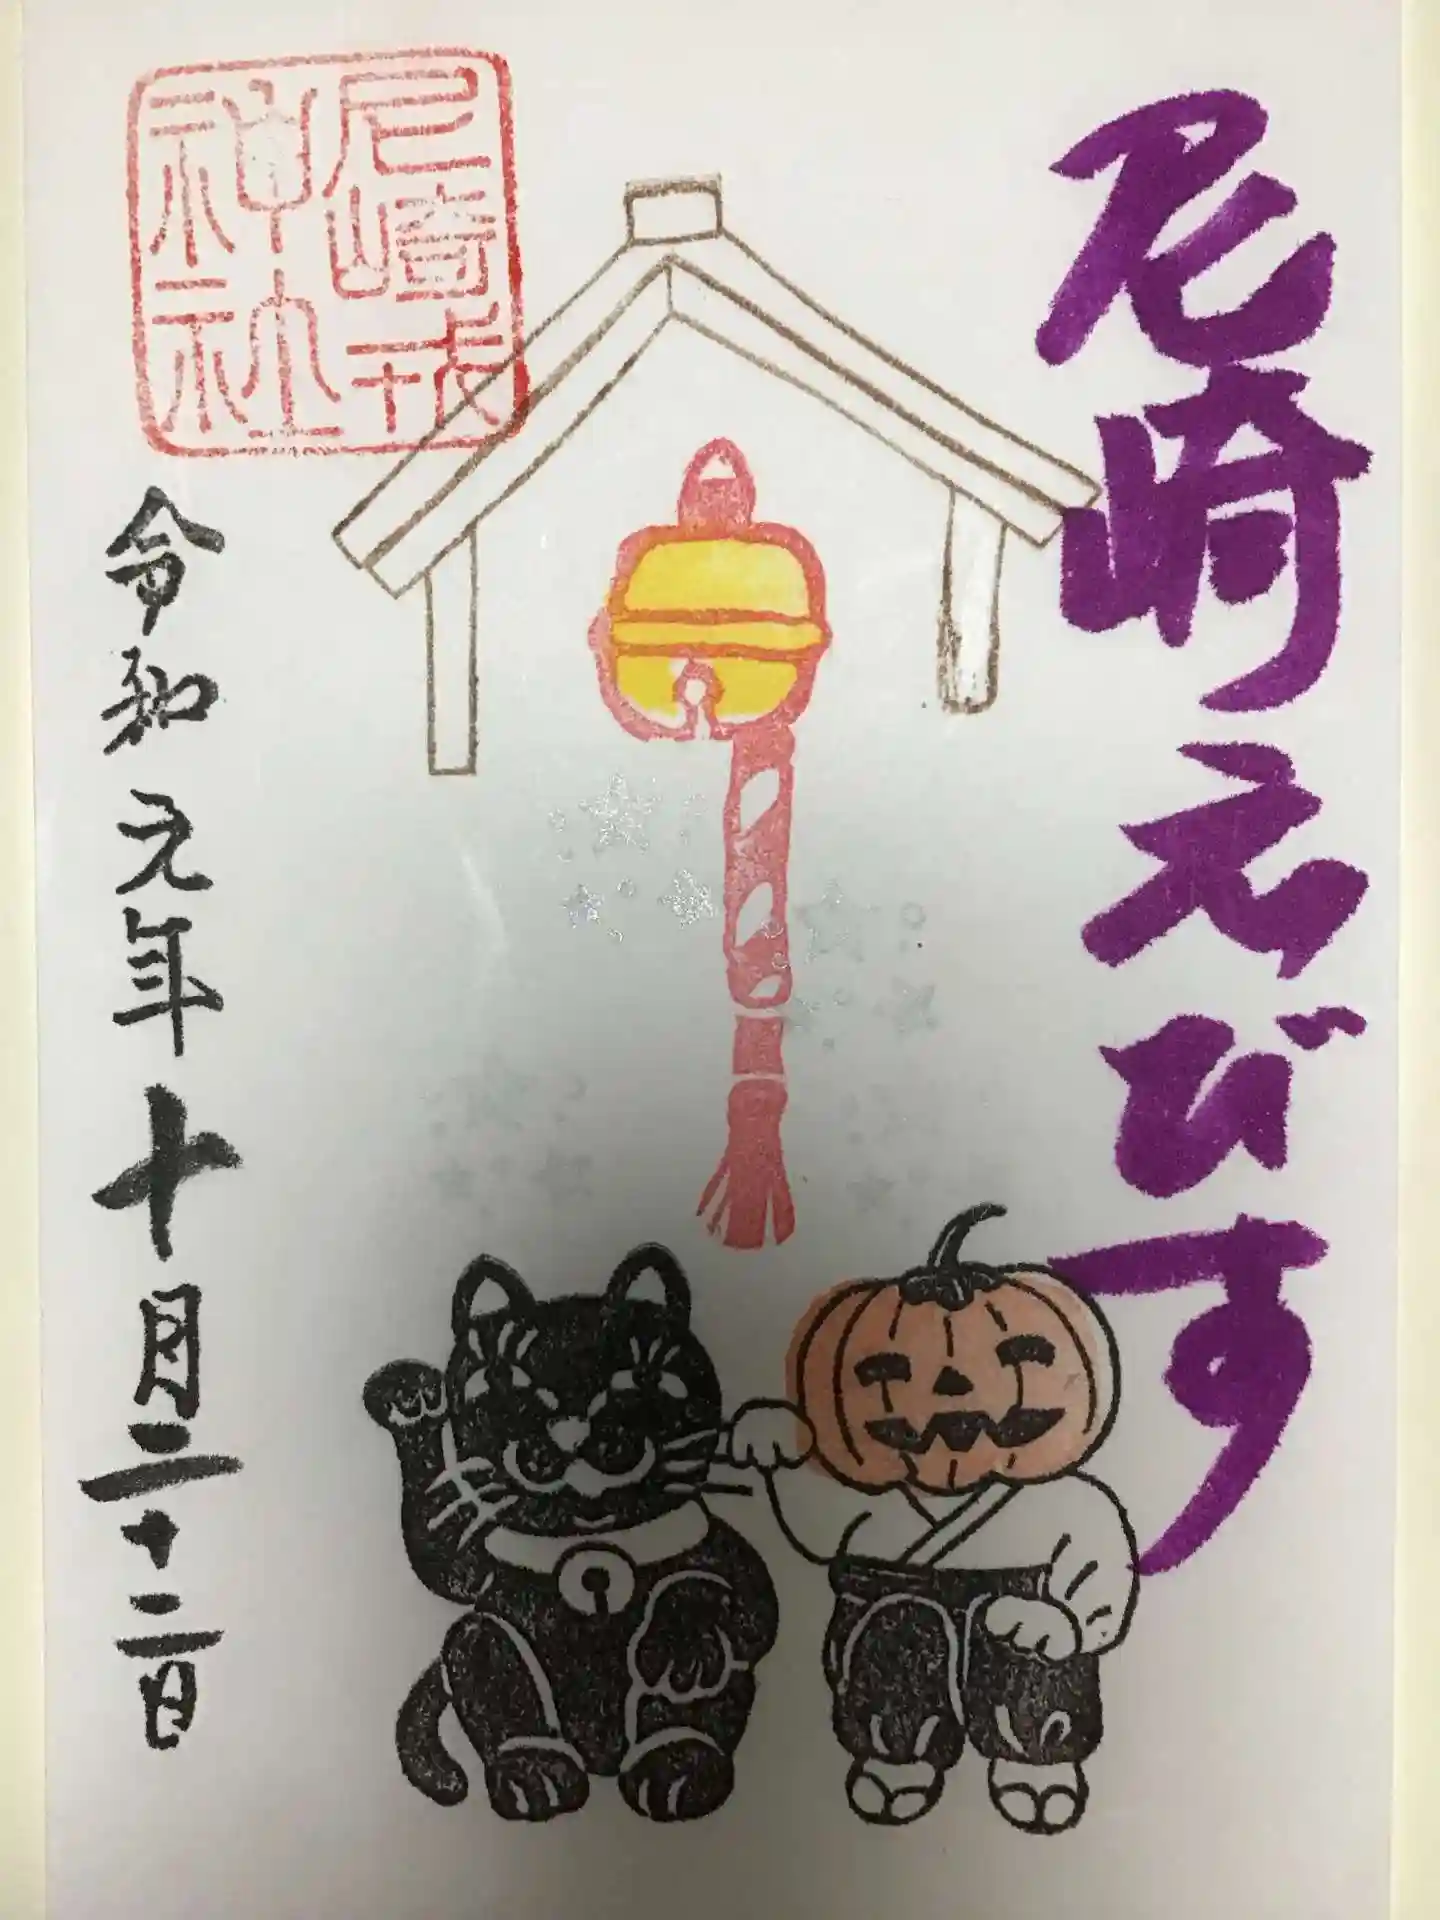 尼崎えびす
尼崎戎
神社
令和元年十月三十二日